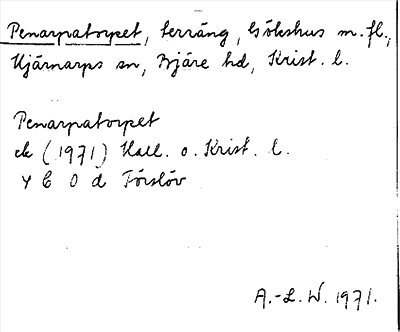 Penarpatorpet, terräng, Gökshus m.fl.,
Hjärnarps sn, Bjäre hd, Krist. l.
Penarpatorpet
ek (1971) Hall. o. Krist. l.
4 C 0 d Förslöv
A.-L. W. 1971.